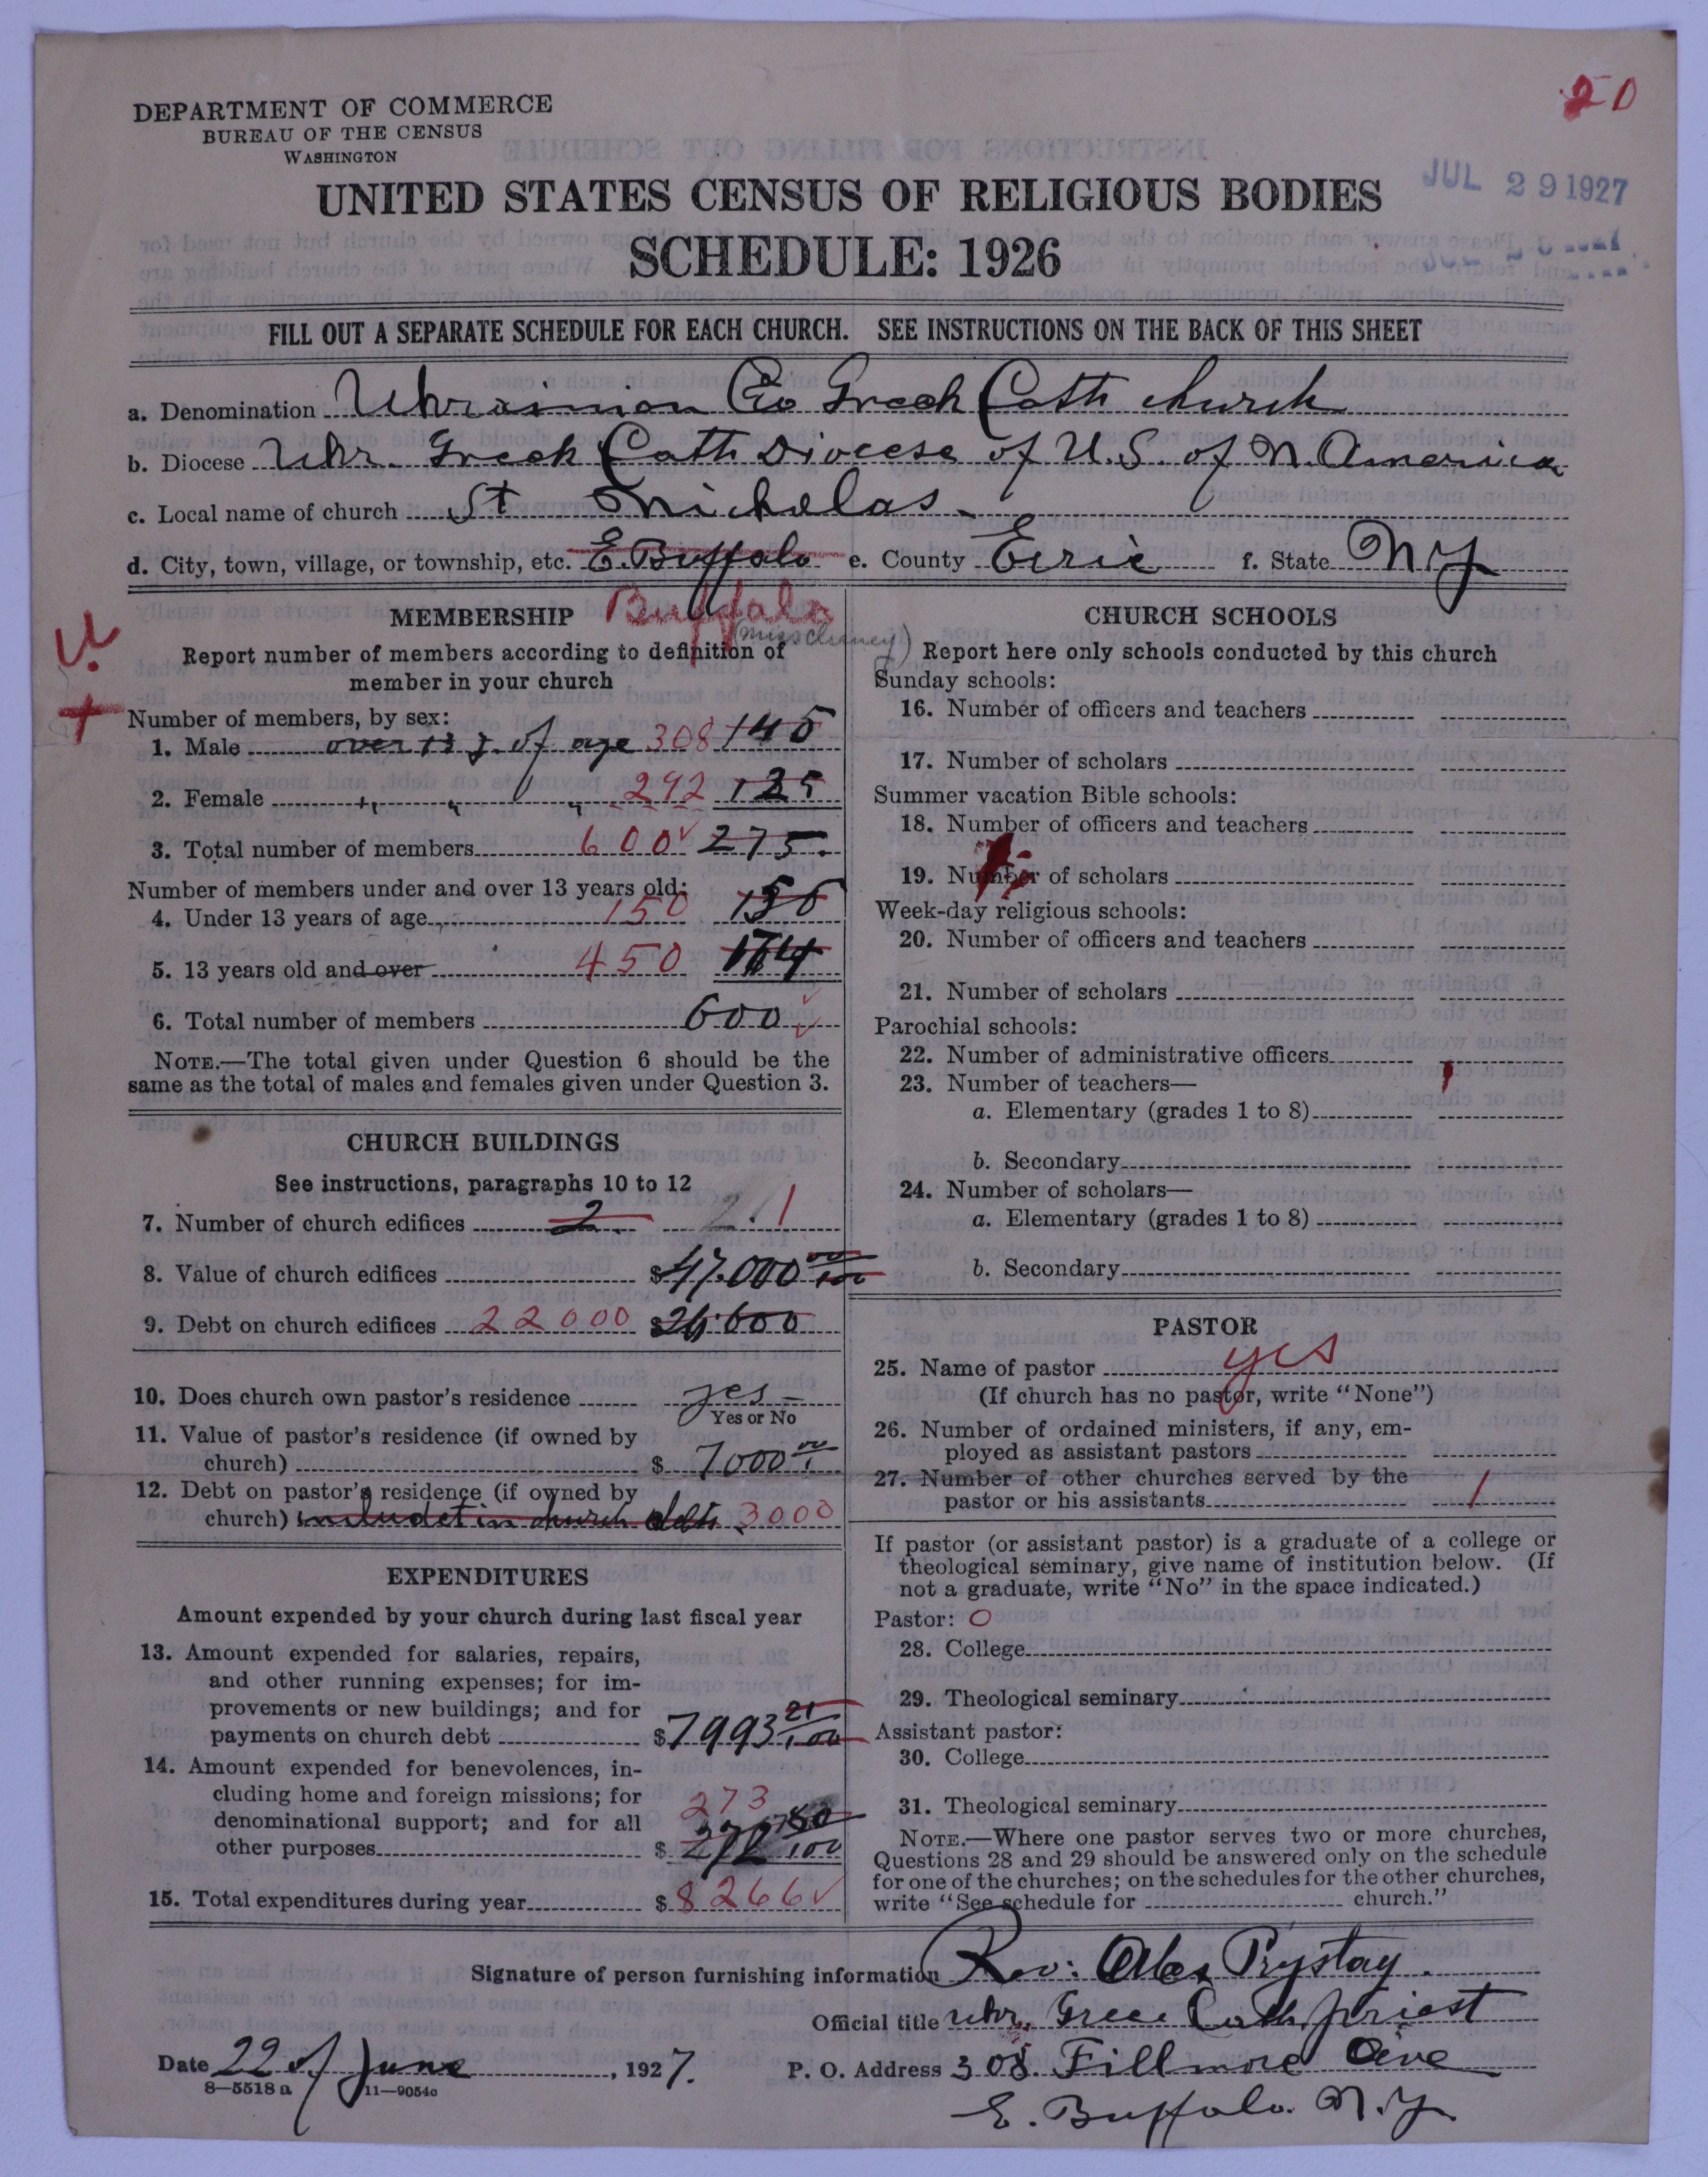 20
DEPARTMENT OF COMMERCE
BUREAU OF THE CENSUS
WASHINGTON
JUL 29 1927
UNITED STATES CENSUS OF RELIGIOUS BODIES
SCHEDULE: 1926
FILL OUT A SEPARATE SCHEDULE FOR EACH CHURCH. SEE INSTRUCTIONS ON THE BACK OF THIS SHEET
a. Denomination Ukrainian Greek Cath church
b. Diocese Ukr. Greek Cath Diocese of U.S. of N. America
c. Local name of church St Nicholas
d. City, town, village, or township, etc. E. Buffalo e. County Eirie f. State N Y
Buffalo
MEMBERSHIP
Report number of members according to definition of
member in your church
Number of members, by sex:
1. Male over 13 y. of age 308 140
2. Female " " " 292 135
3. Total number of members 600 275.
Number of members under and over 13 years old:
4. Under 13 years of age 150
5. 13 years old and over 450
6. Total number of members 600
NOTE.—The total given under Question 6 should be the
same as the total of males and females given under Question 3.
CHURCH BUILDINGS
See instructions, paragraphs 10 to 12
7. Number of church edifices 2. 2. 1
8. Value of church edifices $47.000 00/100
9. Debt on church edifices 22000 $26.600
10. Does church own pastor's residence yes –
Yes or No
11. Value of pastor's residence (if owned by
church) $ 7000
12. Debt on pastor's residence (if owned by
church) includet in church debts 3000
EXPENDITURES
Amount expended by your church during last fiscal year
13. Amount expended for salaries, repairs,
and other running expenses; for im-
provements or new buildings; and for
payments on church debt $7993 21/100
14. Amount expended for benevolences, in-
cluding home and foreign missions; for
denominational support; and for all
other purposes $ 273
15. Total expenditures during year $ 8266
CHURCH SCHOOLS
Report here only schools conducted by this church
Sunday schools:
16. Number of officers and teachers
17. Number of scholars
Summer vacation Bible schools:
18. Number of officers and teachers
19. Number of scholars
Week-day religious schools:
20. Number of officers and teachers
21. Number of scholars
Parochial schools:
22. Number of administrative officers
23. Number of teachers—
a. Elementary (grades 1 to 8)
b. Secondary
24. Number of scholars—
a. Elementary (grades 1 to 8)
b. Secondary
PASTOR
25. Name of pastor yes
(If church has no pastor, write "None")
26. Number of ordained ministers, if any, em-
ployed as assistant pastors
27. Number of other churches served by the
pastor or his assistants 1
If pastor (or assistant pastor) is a graduate of a college or
theological seminary, give name of institution below. (If
not a graduate, write "No" in the space indicated.)
Pastor: 0
28. College
29. Theological seminary
Assistant pastor:
30. College
31. Theological seminary
NOTE.—Where one pastor serves two or more churches,
Questions 28 and 29 should be answered only on the schedule
for one of the churches; on the schedules for the other churches,
write "See schedule for church."
Signature of person furnishing information Rev: Alex Prystay.
Official title Ukr. Gree. Cath. priest
Date 22 of June, 1927. P. O. Address 308 Fillmore Ave
8—5518 a 11—9054c
E. Buffalo. N.Y.